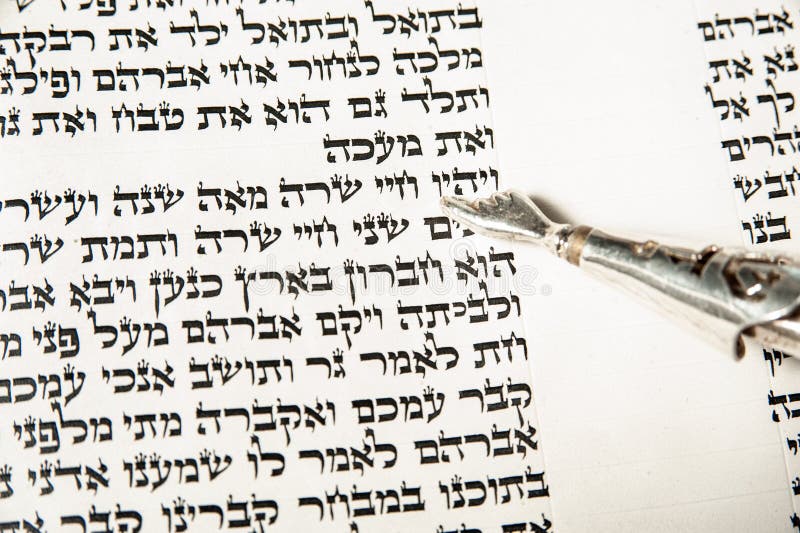 אברהם
נא את
לך אל
בנו
בתואל ובתואל ילד את רבקה
מלכה לנחור אחי אברהם ופילג
ותלד גם הוא את טבח ואת
ואת מעכה
ויהיו חיי שרה מאה שנה ועשרי
נים שני חיי שרה ותמת שר
הוא חברון בארץ כנען ויבא אבר
ולבכתה ויקם אברהם מעל פני
חת לאמר גר ותושב אנכי עמכם
קבר עמכם ואקברה מתי מלפני
אברהם לאמר לו שמענו אדני
בתוכנו במבחר קברינו קבר